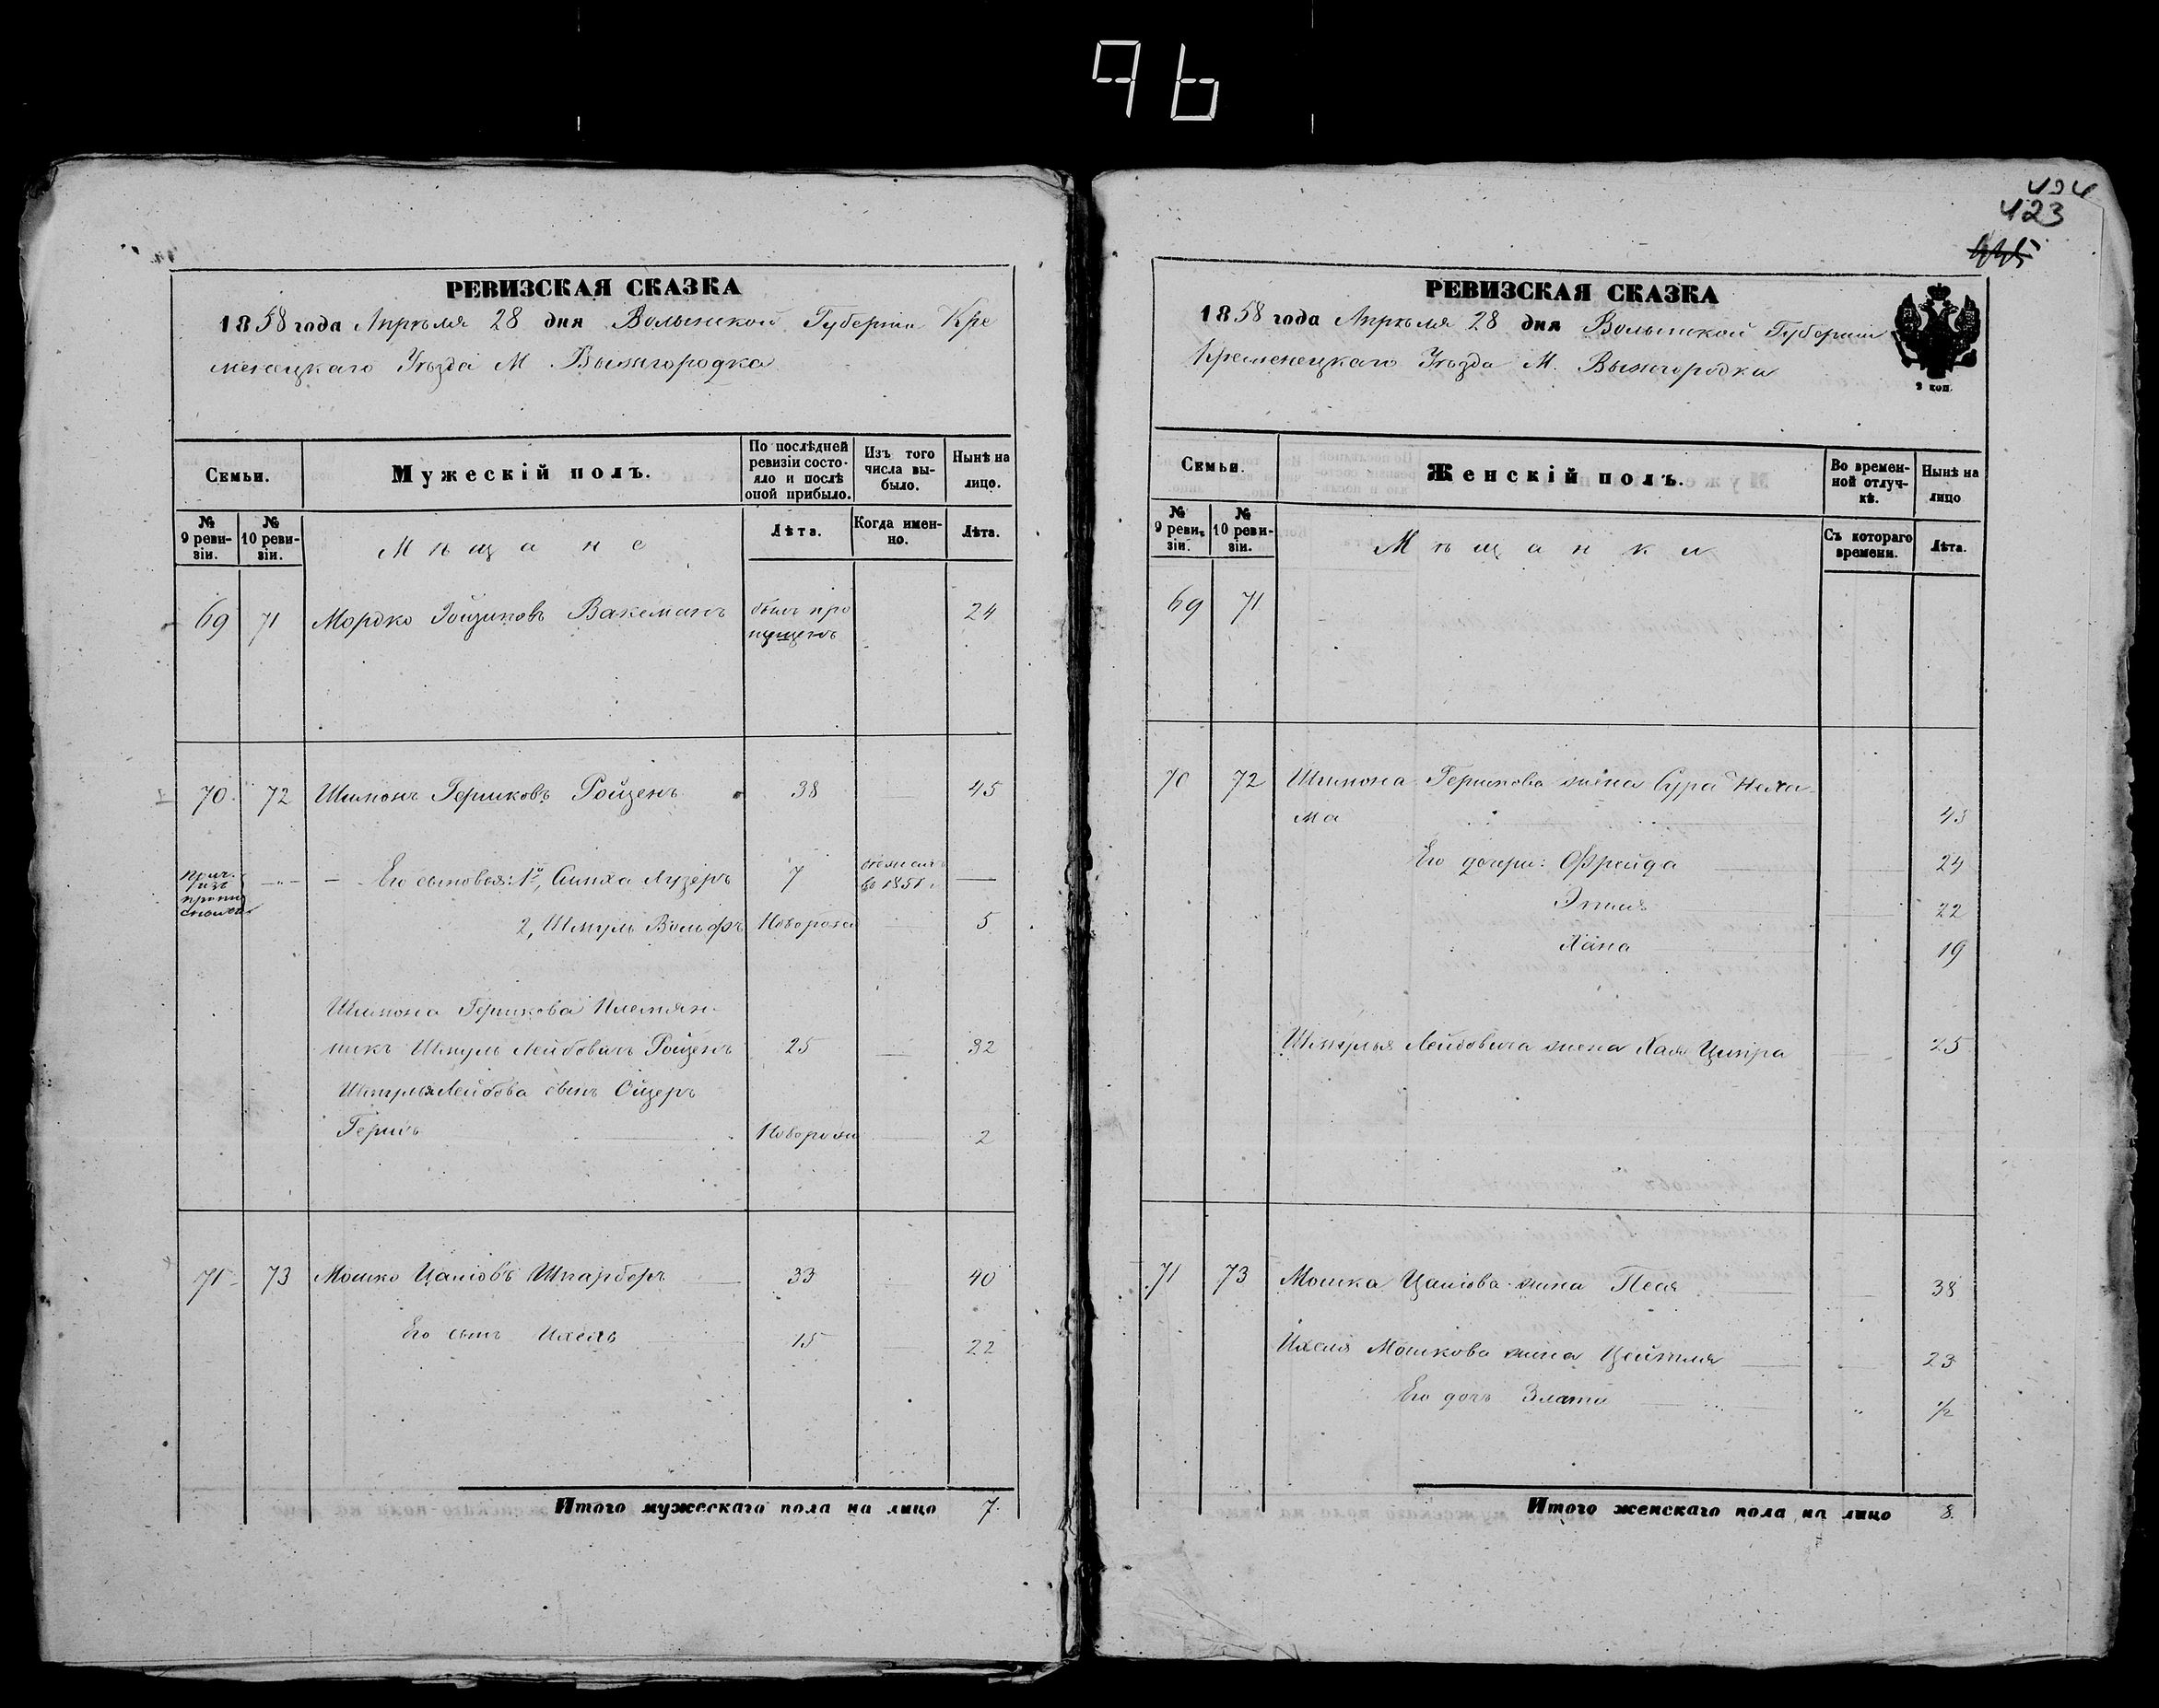 96
РЕВИЗСКАЯ СКАЗКА
1858 года Апрѣля 28 дня Волынской Губерніи Кре
менецкаго Уѣзда М Вышгородка
Семьи.
Мужескій полъ.
По послѣдней ревизіи состояло и послѣ оной прибыло.
Изъ того числа выбыло.
Нынѣ на лицо.
№ 9 ревизіи.
№ 10 ревизіи.
Мѣщане
Лѣта.
Когда именно.
Лѣта.
69 71 Мордко Іойзиковъ Вакеманъ былъ про 24
пущенъ
70 72 Шимонъ Гершковъ Ройзенъ 38 45
Его сыновья: 1й, Симха Лузеръ 7 во 1851 г —
2, Шмуль Вольфъ Новорожд 5
Шимона Гершкова Племян-
никъ Шмуль Лейбовичъ Ройзенъ 25 32
Шмуля Лейбова сынъ Ойзеръ
Гершъ Новорож 2
71 73 Мошко Цаліовъ Шпарберъ 33 40
Его сынъ Ихель 15 22
Итого мужескаго пола на лицо 7.
494
423
РЕВИЗСКАЯ СКАЗКА
1858 года Апрѣля 28 дня Волынской Губерніи
Кременецкаго Уѣзда М. Вышгородка
Семьи.
Женскій полъ.
Во временной отлучкѣ.
Нынѣ на лицо
№ 9 ревизіи.
№ 10 ревизіи.
Мѣщанки
Съ котораго времени.
Лѣта.
69 71
70 72 Шимона Гершкова жена Сура Неха-
ма 43
Его дочери: Фрейда 24
Этля 22
Хана 19
Шмулья Лейбовича жена Хая Ципра 25
71 73 Мошка Цаліова жена Песя 38
Ихеля Мошкова жена Цейтля 23
Его дочь Злата 1/2
Итого женскаго пола на лицо 8.